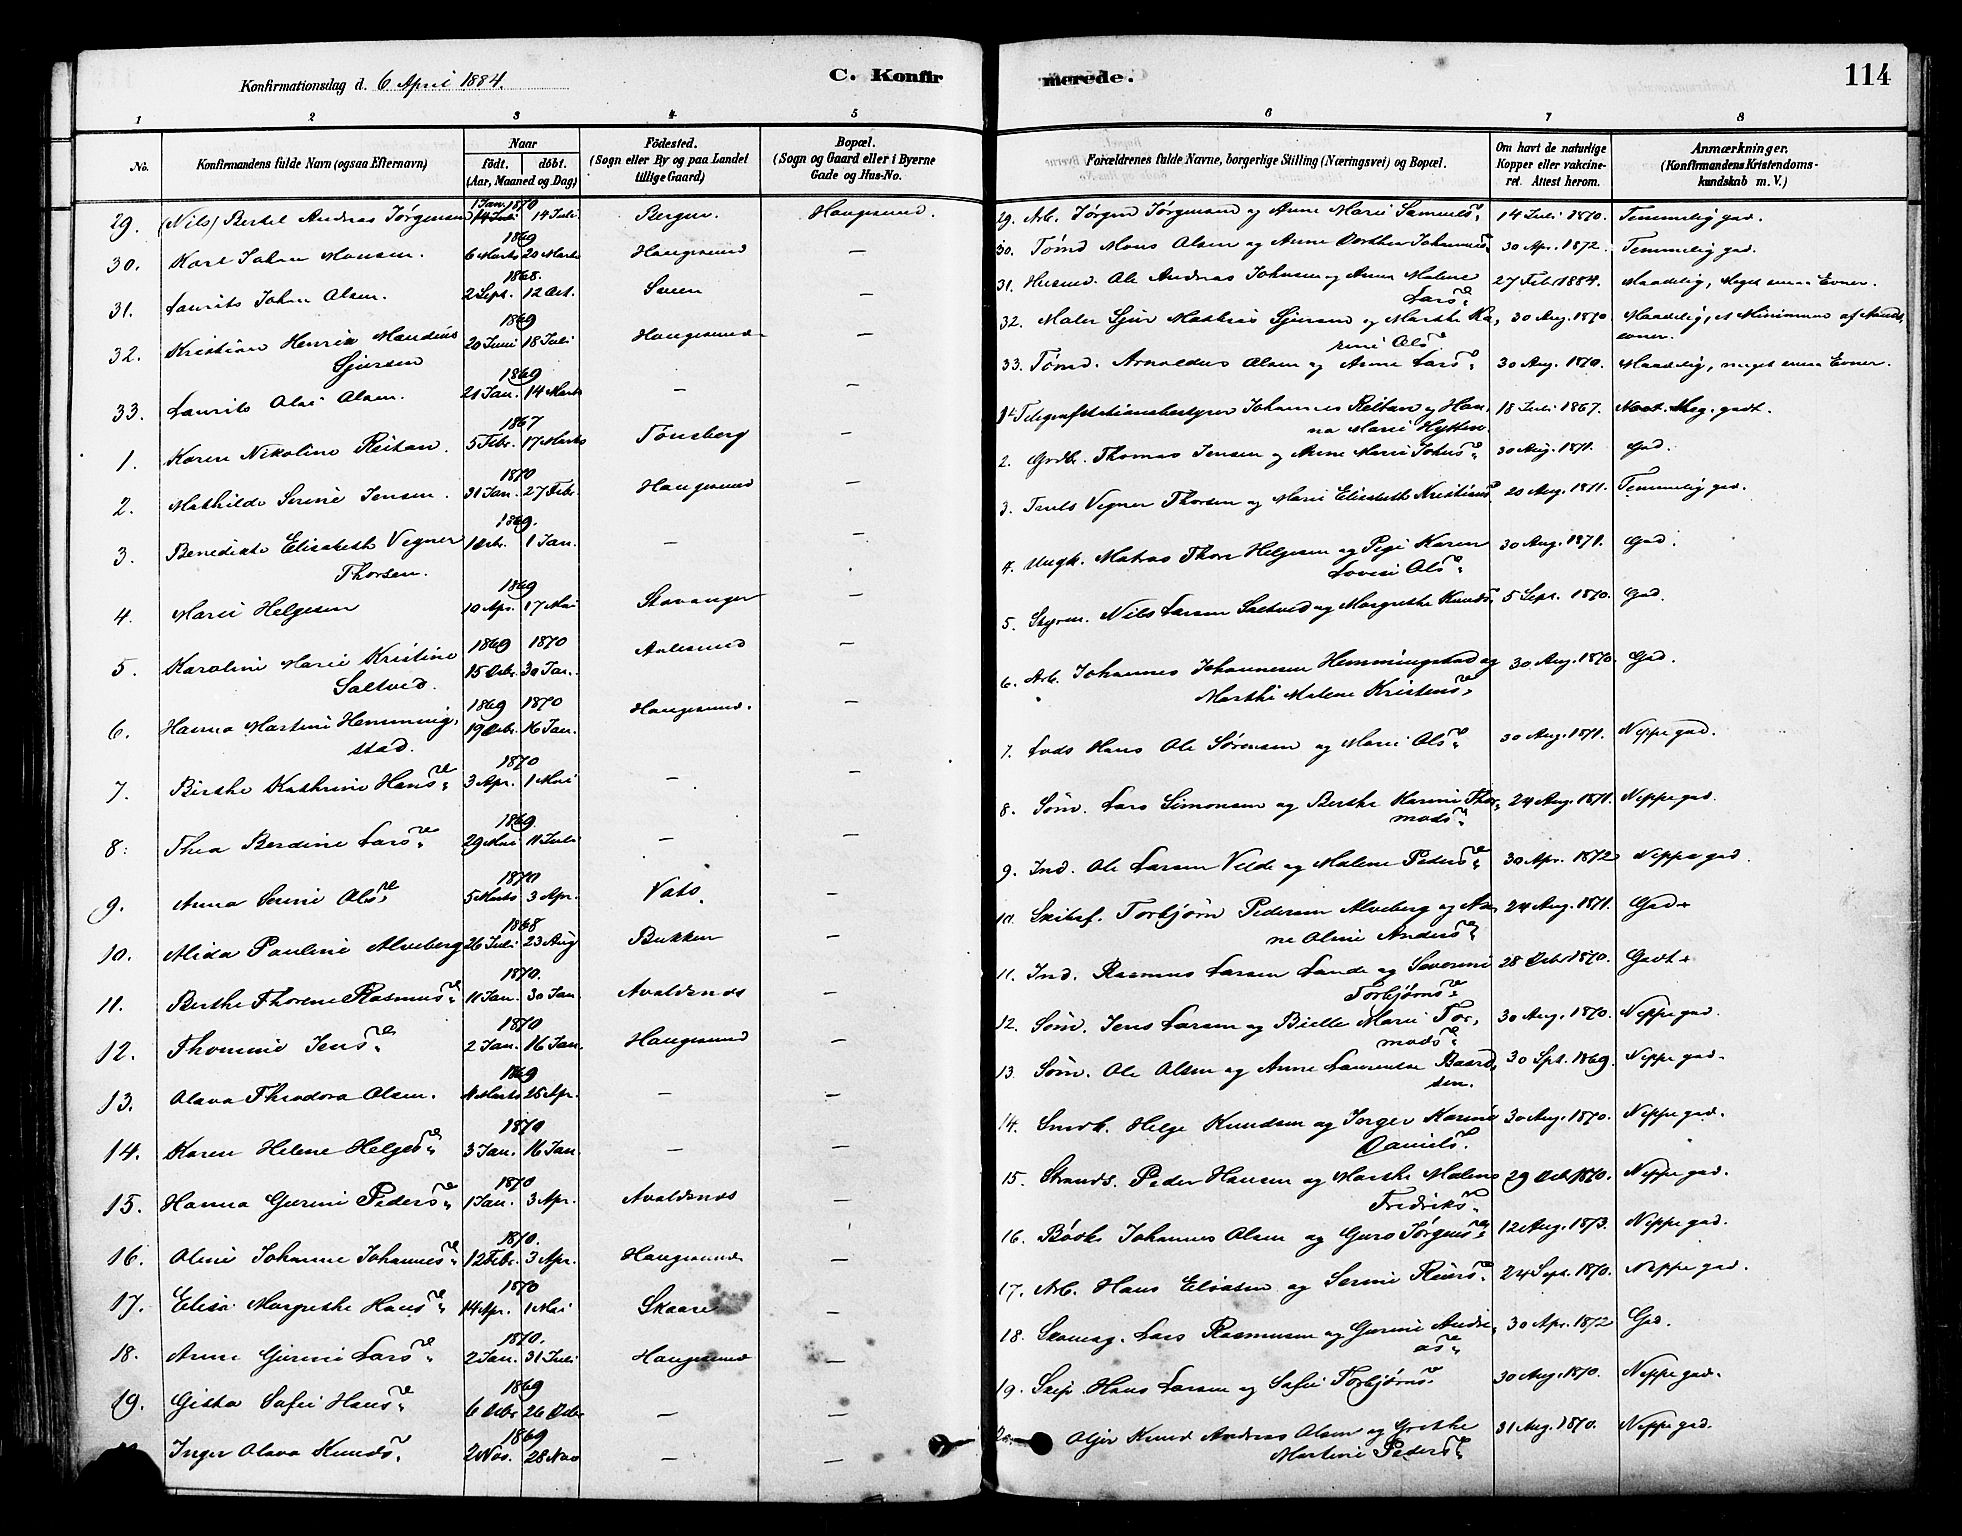 Konfirmationsdag d. 6 April 1884.
C. Konfirmerede.
114
1 2 3 4 5 6 7 8
No. Konfirmandens fulde Navn (ogsaa Efternavn) Naar født. døbt. (Aar, Maaned og Dag) Födested. (Sogn eller By og paa Landet tillige Gaard) Bopæl. (Sogn og Gaard eller i Byerne Gade og Hus-No. Forældrenes fulde Navne, borgerlige Stilling (Næringsvei) og Bopæl. Om havt de naturlige Kopper eller vakcineret. Attest herom. Anmærkninger. (Konfirmandens Kristendomskundskab m. V.)
29. (Nils) Bertel Andreas Jørgensen 1 Jan. 1870 14 Juli Bergen Haugesund. 29. Arb. Jørgen Jørgensen og Anne Marie Samuels 14 Juli 1870. Temmelig god.
30. Karl Johan Monsen. 1869 6 Marts 20 Marts Haugesund — 30. Tømd Mons Olsen og Anne Dorthea Johannes 30 Apr. 1872. Temmelig god.
31. Laurits Johan Olsen. 1868. 2 Sept. 12 Oct. — 31. Husmd. Ole Andreas Johnsen og Anna Malene Lars 27 Febr 1884. Maadelig, Meget smaa Evner.
32. Kristian Henrik Mandius Sjursen 1869 20 Juni 18 Juli Haugesund — 32. Maler Sjur Mathias Sjursen og Marthe Karine Ols 30 Aug. 1870 Maadelig, et Minimum af Aandsevner.
33. Laurits Olai Olsen. 1869 21 Jan. 14 Marts — — 33. Tømd. Arnoldus Olsen og Anne Lars 30 Aug. 1870. Maadelig, meget smaa Evner.
1. Karen Nikoline Reitan. 1867 5 Febr. 17 Marts Tønsberg — 1. Telegrafstationsbestyrer Johannes Reitan og Hanna Marie Hytten 18 Juli 1867. Noot. Meg. godt.
2. Mathilde Serine Jensen. 1870 31 Jan. 27 Febr. Haugesund — 2. Grdbr. Thomas Jensen og Anne Marie 30 Aug. 1871. God.
3. Benedikte Elisabeth Vegner Thorsen. 1869. 1 Jan. — — 3. Truls Vegner Thorsen og Marie Elisabeth Kristians 20 Aug. 1871. Temmelig god.
4. Marie Helgesen 1869 10 Apr. 17 Mai Stavanger — 4. Ungk. Matros Thore Helgesen og Karen Lovise Ols 30 Aug. 1871. God.
5. Karoline Marie Kristine Saltved. 1869 1870 15 Decbr. 30 Jan. Aalesund — 5. Styrm. Nils Larsen Saltved og Margrethe Knuds 5 Sept. 1870. God.
6. Hanna Martine Hemmingstad. 1869 1870 19 Decbr. 16 Jan. Haugesund. — 6. Arb. Johannes Johannesen Hemmingstad og Marthe Malene Kristens 30 Aug. 1870. God.
7. Birthe Kathrine Hans 1870 3 Apr. 1 Mai — — 7. Lods Hans Ole Sørensen og Marie Ols 30 Aug. 1871. Neppe god.
8. Thea Berdine Lars 1869 29 Mai 11 Juli — — 8. Søm. Lars Simonsen og Berthe Karine Thormods 24 Aug. 1871. Neppe god.
9. Anna Serine Ols 1870 5 Marts 3 Apr. Vats. — 9. Ind. Ole Larsen Velde og Malene Peders 30 Apr. 1872 Neppe god.
10. Alida Pauline Alveberg 1868 26 Juli 23 Aug Bukken — 10. Skibsf. Torbjørn Pedersen Alveberg og Anne Oline Anders 24 Aug. 1871. God +
11. Berthe Thorene Rasmus 1870. 11 Jan. 30 Jan Avaldsnes — 11. Ind. Rasmus Larsen Lande og Severine Torbjørns 28 Decbr 1870. Godt +
12. Thomine Jens 1870 2 Jan. 16 Jan. Haugesund — 12. Søm. Jens Larsen og Bielle Marie Tormods 30 Aug. 1870. Neppe god.
13. Olava Theodora Olsen. 1869 Marts 25 Apr. — — 13. Søm. Ole Olsen og Anne Laurentse Baardsen. 30 Spt. 1869. Neppe god.
14. Karen Helene Helges 1870 3 Jan. 16 Jan — — 14. Smedk. Helge Knudsen og Inger Karine Daniels 30 Aug. 1870. Neppe god.
15. Hanna Gurine Peders 1870 1 Jan. 3 Apr. Avaldsnes — 15. Strands. Peder Hansen og Marthe Malene Fredriks 29 Oct 1870. Neppe god.
16. Oline Johanne Johannes 1870. 12 Febr. 3 Apr. Haugesund — 16. Bødk. Johannes Olsen og Guro Jørgens 12 Aug. 1873. Neppe god.
17. Elisa Margrethe Hans 1870 14 Apr. 1 Mai Skaare — 17. Arb. Hans Eliasen og Serine 24 Sept. 1870. Neppe god.
18. Anne Gurine Lars 1870. 2 Jan. 31 Juli Haugesund — 18. Skomag. Lars Rasmusen og Gurine Andreas 30 Apr. 1872 God.
19. Githa Sofie Hans 1869 6 Decbr 26 Decbr — — 19. Skip. Hans Larsen og Sofie Torbjørns 30 Aug. 1870. Neppe god.
Inger Olava Knuds 1869 2 Nov. 28 Nov — — 20. Knud Andreas Olsen og Grethe Martine Peders 31 Aug. 1870. Neppe god.